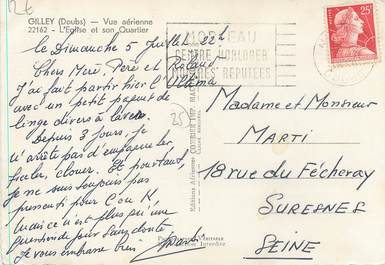 12€
GILLEY (Doubs) — Vue aérienne
22162 - L'Eglise et son Quartier
MORTEAU
CENTRE HORLOGER
MONTRES REPUTEES
25F
le Dimanche 5 Juillet 22h
Chers Mère, Père et
J'ai fait partir hier l'
avec un petit paquet de
linge divers à laver.
Depuis 3 jours, je
n'arrête pas d'empaqueter,
ficeler, clouer. Et pourtant
je ne suis toujours pas
pressenti pour
n'est plus qu'une
question de jours sans doute.
Je vous embrasse bien
25F
Editions Aériennes COMBIER IMP. MACON
Madame et Monsieur
MARTI
18 rue du Fécheray
SURESNES
SEINE
Interdite